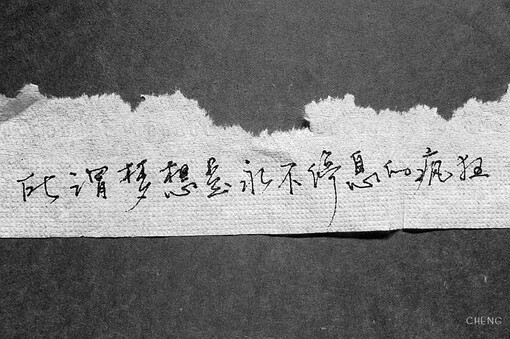 所谓梦想是永不停息的疯狂
CHENG